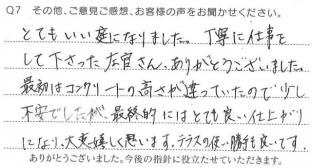 Q7 その他、ご意見ご感想、お客様の声をお聞かせください。
とてもいい庭になりました。丁寧に仕事を
して下さった左官さん、ありがとうございました。
最初はコンクリートの高さが違っていたので少し
不安でしたが、最終的にはとても良い仕上がり
になり、大変嬉しく思います。テラスの使い勝手も良いです。
ありがとうございました。今後の指針に役立たせていただきます。